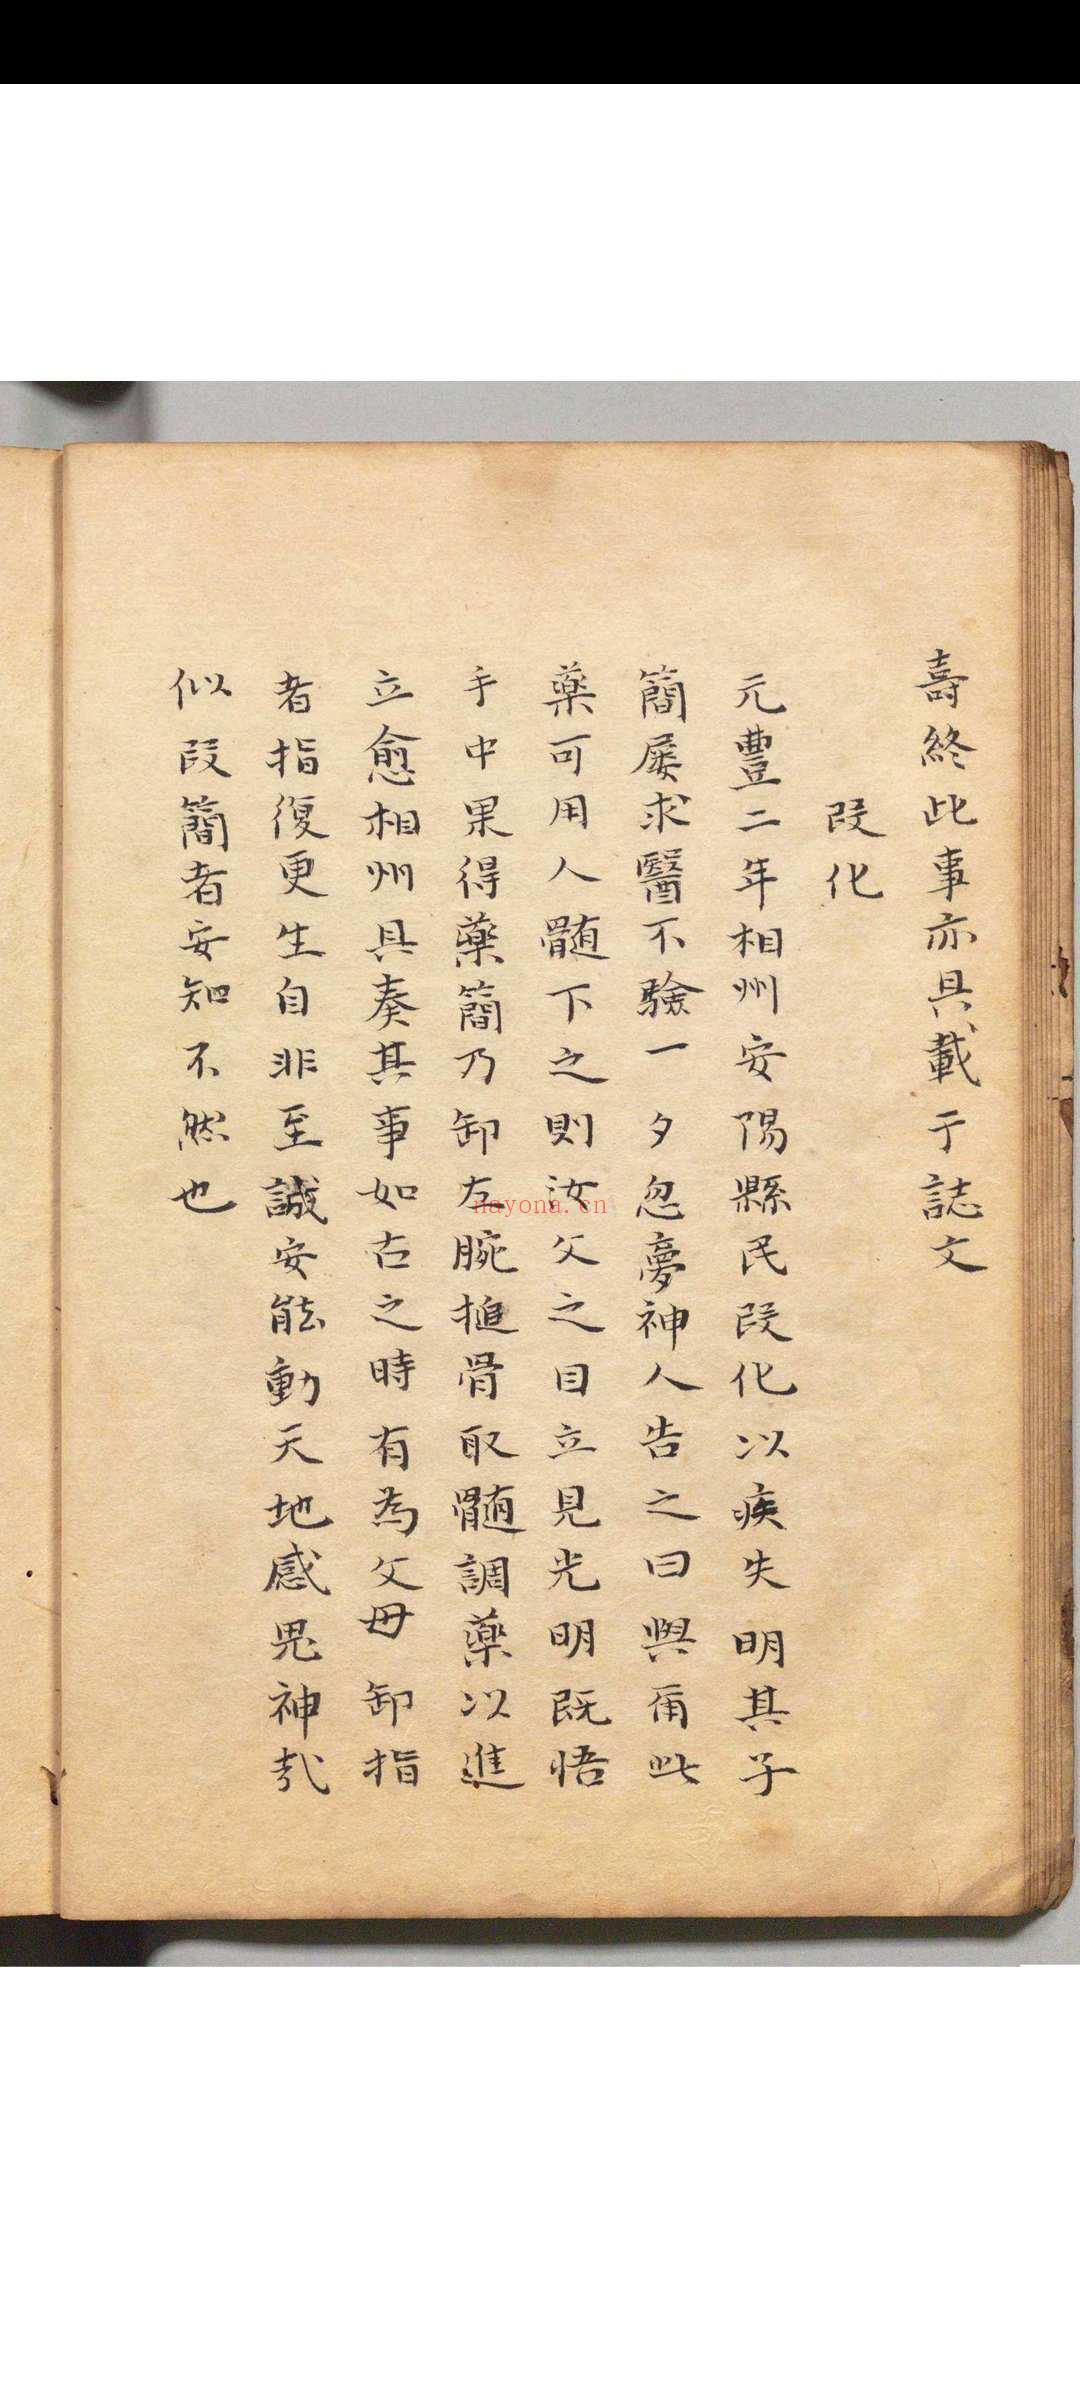 壽終此事亦具載于誌文
段化
元豐二年相州安陽縣民段化以疾失明其子
簡屡求醫不驗一夕忽夢神人告之曰與爾此
藥可用人髓下之則汝父之目立見光明既悟
手中果得藥簡乃卸左腕搥骨取髓調藥以進
立愈相州具奏其事如古之時有為父母卸指
者指復更生自非至誠安能動天地感鬼神哉
似段簡者安知不然也
nayona.cn